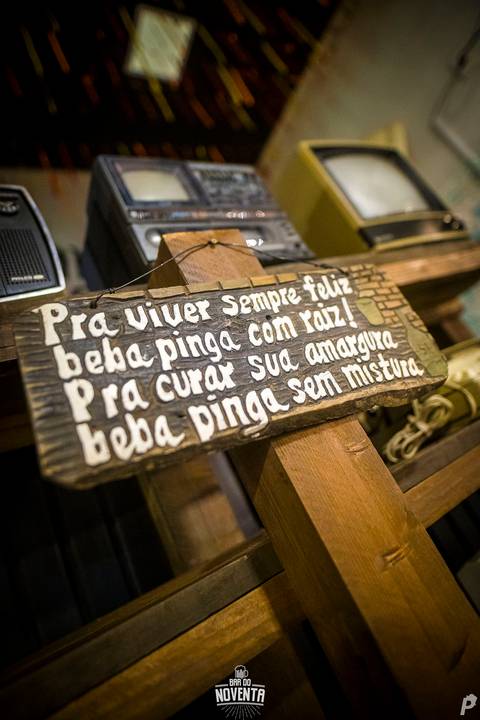 Pra viver sempre feliz
beba pinga com raiz!
Pra curar sua amargura
beba pinga sem mistura
BAR DO
NOVENTA
P